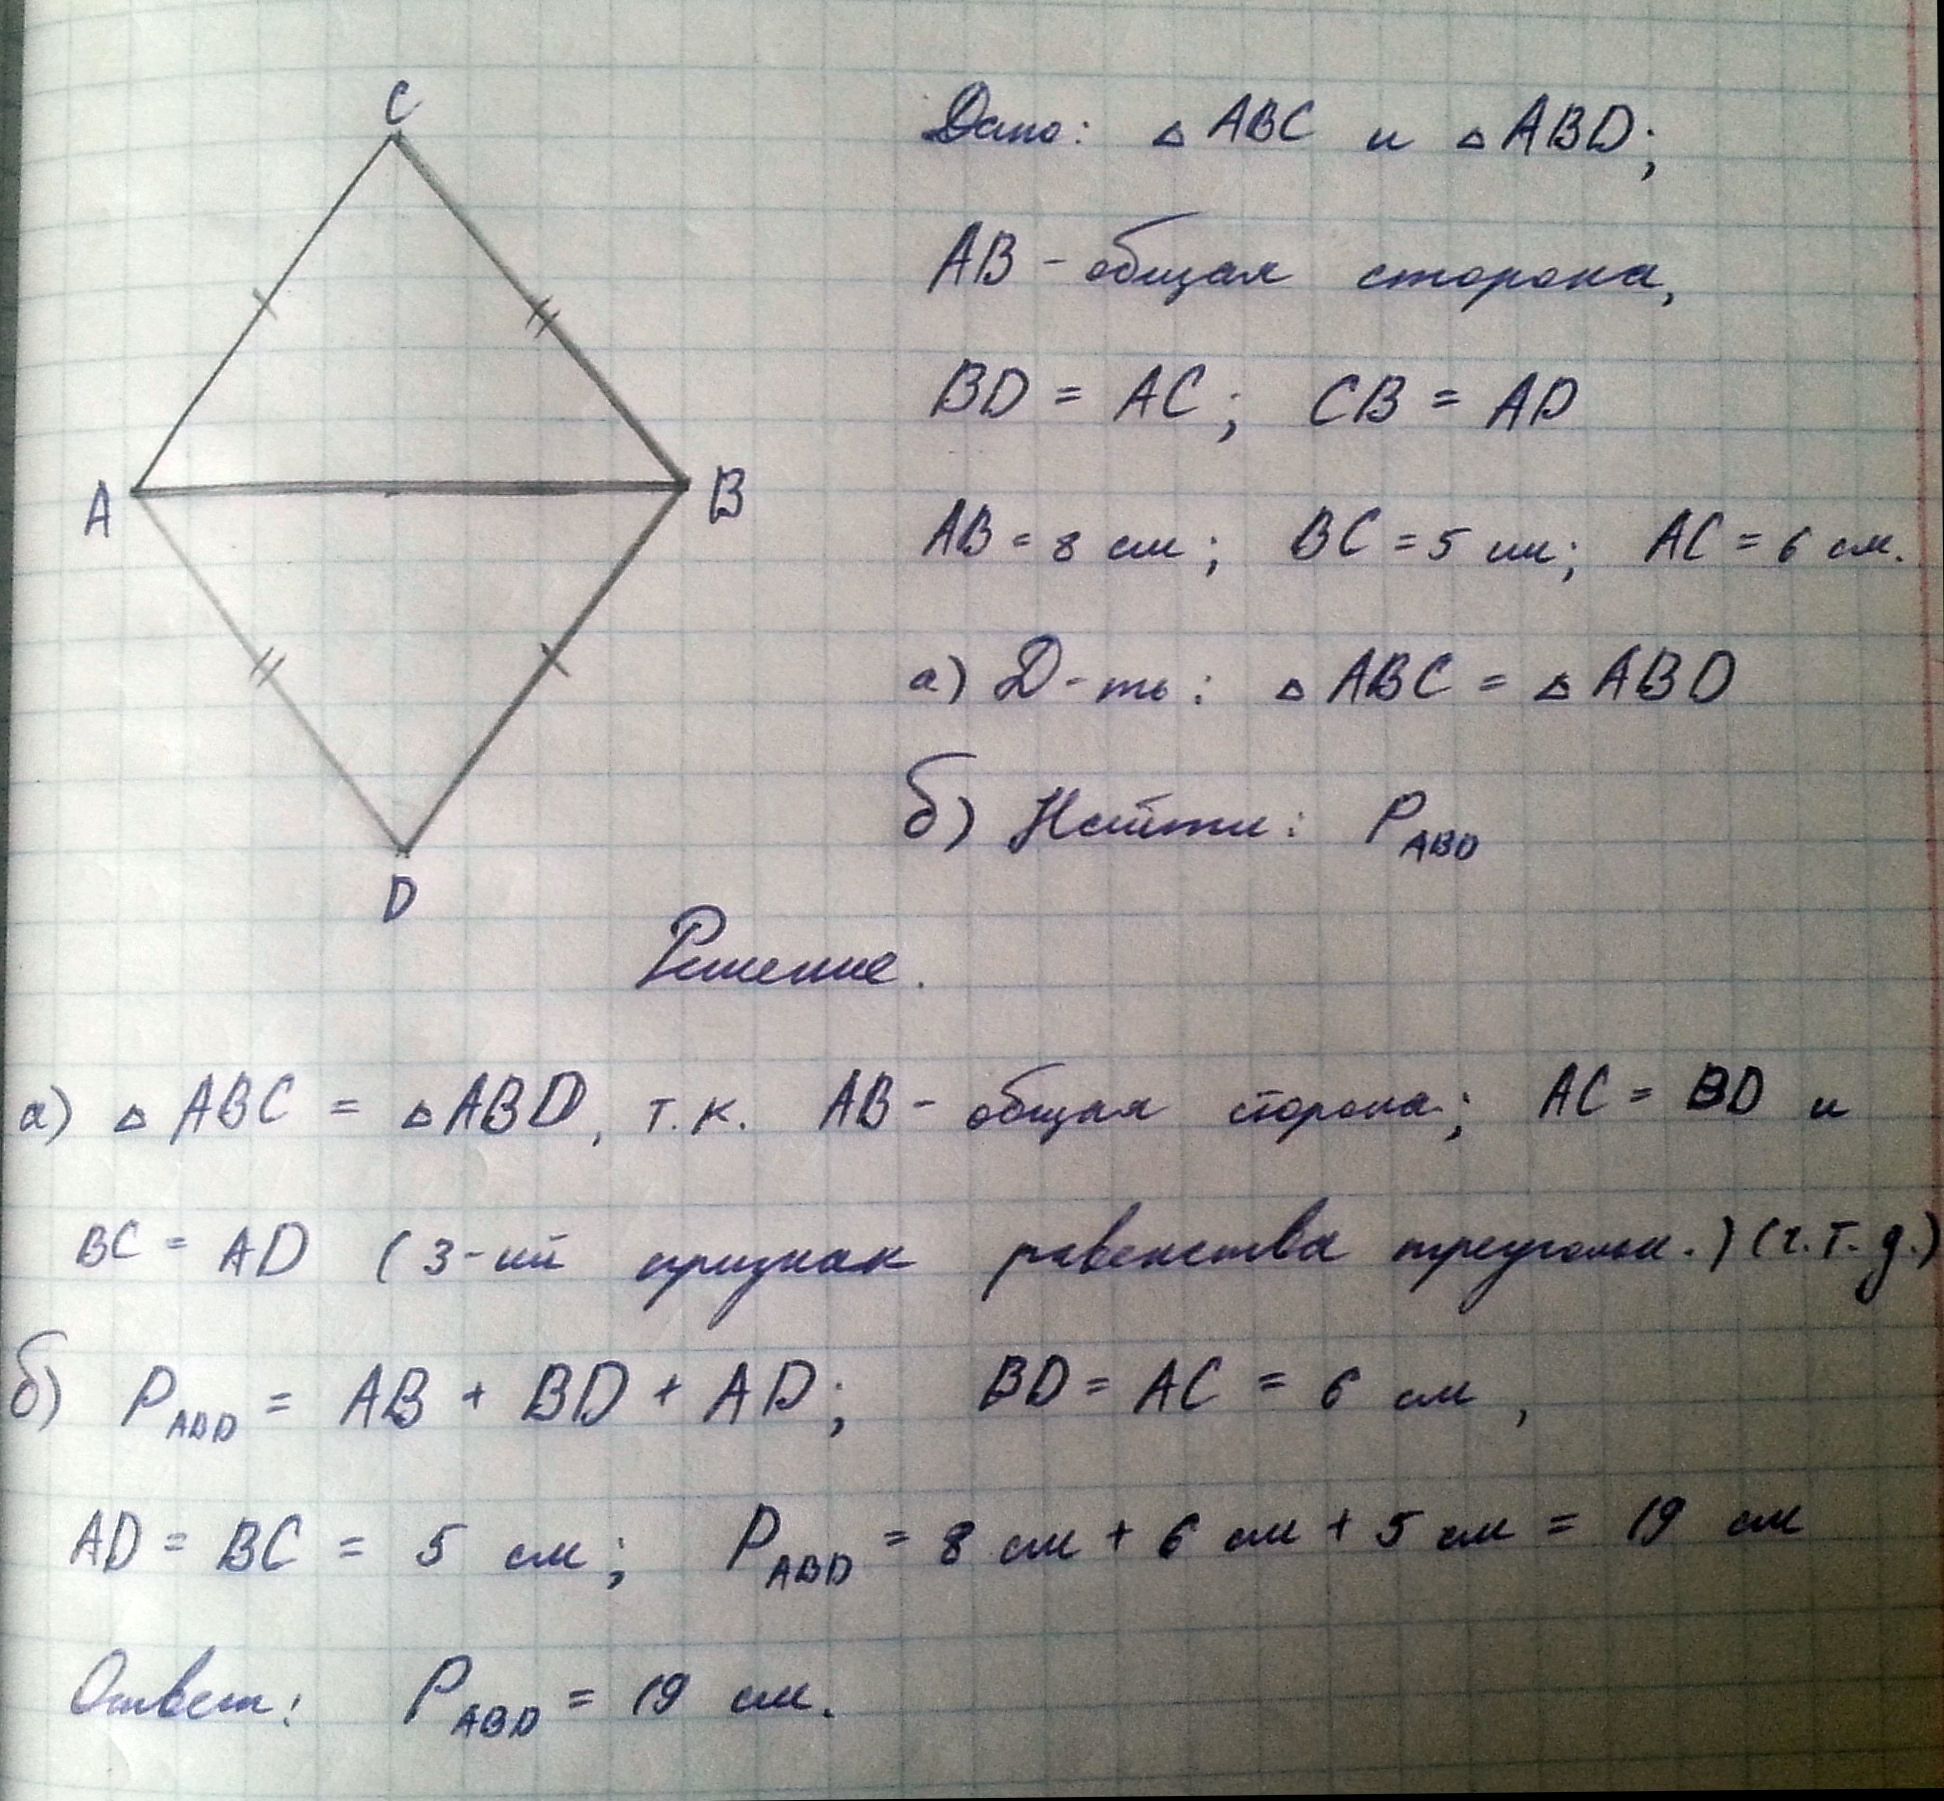 C
Дано: △ ABC и △ ABD;
AB - общая сторона,
BD = AC; CB = AD
A
B
AB = 8 см; BC = 5 см; AC = 6 см.
а) Д-ть: △ ABC = △ ABD
б) Найти: P ABD
D
Решение.
а) △ ABC = △ ABD, т.к. AB - общая сторона; AC = BD и
BC = AD (3-ий признак равенства треугольн.) (ч.т.д.)
б) P ABD = AB + BD + AD; BD = AC = 6 см,
AD = BC = 5 см; P ABD = 8 см + 6 см + 5 см = 19 см
Ответ: P ABD = 19 см.